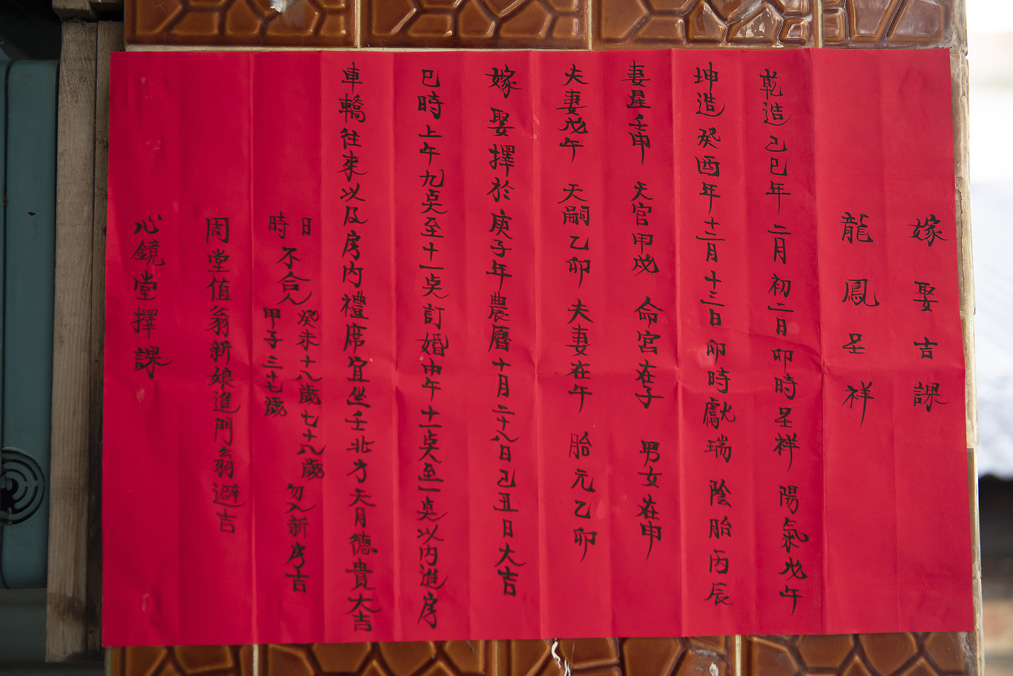 嫁娶吉課
龍鳳呈祥
乾造己巳年二月初二日卯時呈祥 陽氣戊午
坤造癸酉年十二月十三日卯時獻瑞 陰胎丙辰
妻星壬申 天官甲戌 命宮在子 男女在申
夫妻戊午 天嗣乙卯 夫妻在午 胎元乙卯
嫁娶擇於庚子年農曆十月二十八日己丑日大吉
巳時上午九点至十一点訂婚中午十一点至一点以内進房
車轎往來以及房内禮席宜坐壬北方天月德貴大吉
日時不合人 癸未十八歲七十八歲 甲子三十七歲 勿入新房吉
周堂值翁新娘進門翁避吉
心鏡堂擇課